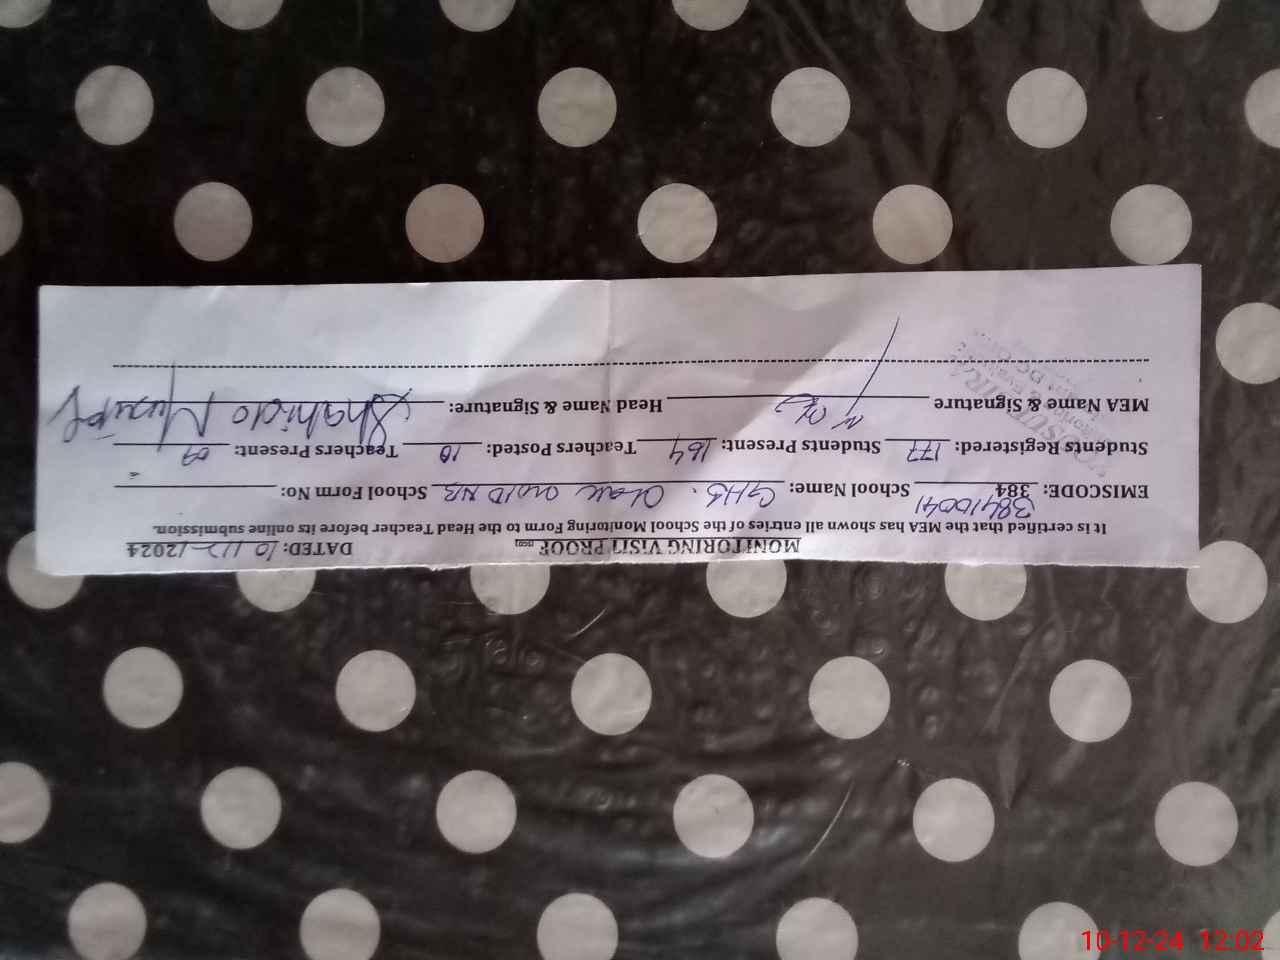 MONITORING VISIT PROOF DATED: 10/12/2024
It is certified that the MEA has shown all entries of the School Monitoring Form to the Head Teacher before its online submission.
EMISCODE: 384 38410041 School Name: GHS. School Form No:
Students Registered: 177 Students Present: 164 Teachers Posted: 10 Teachers Present: 09
MEA Name & Signature Head Name & Signature: Shahida
10-12-24 12:02